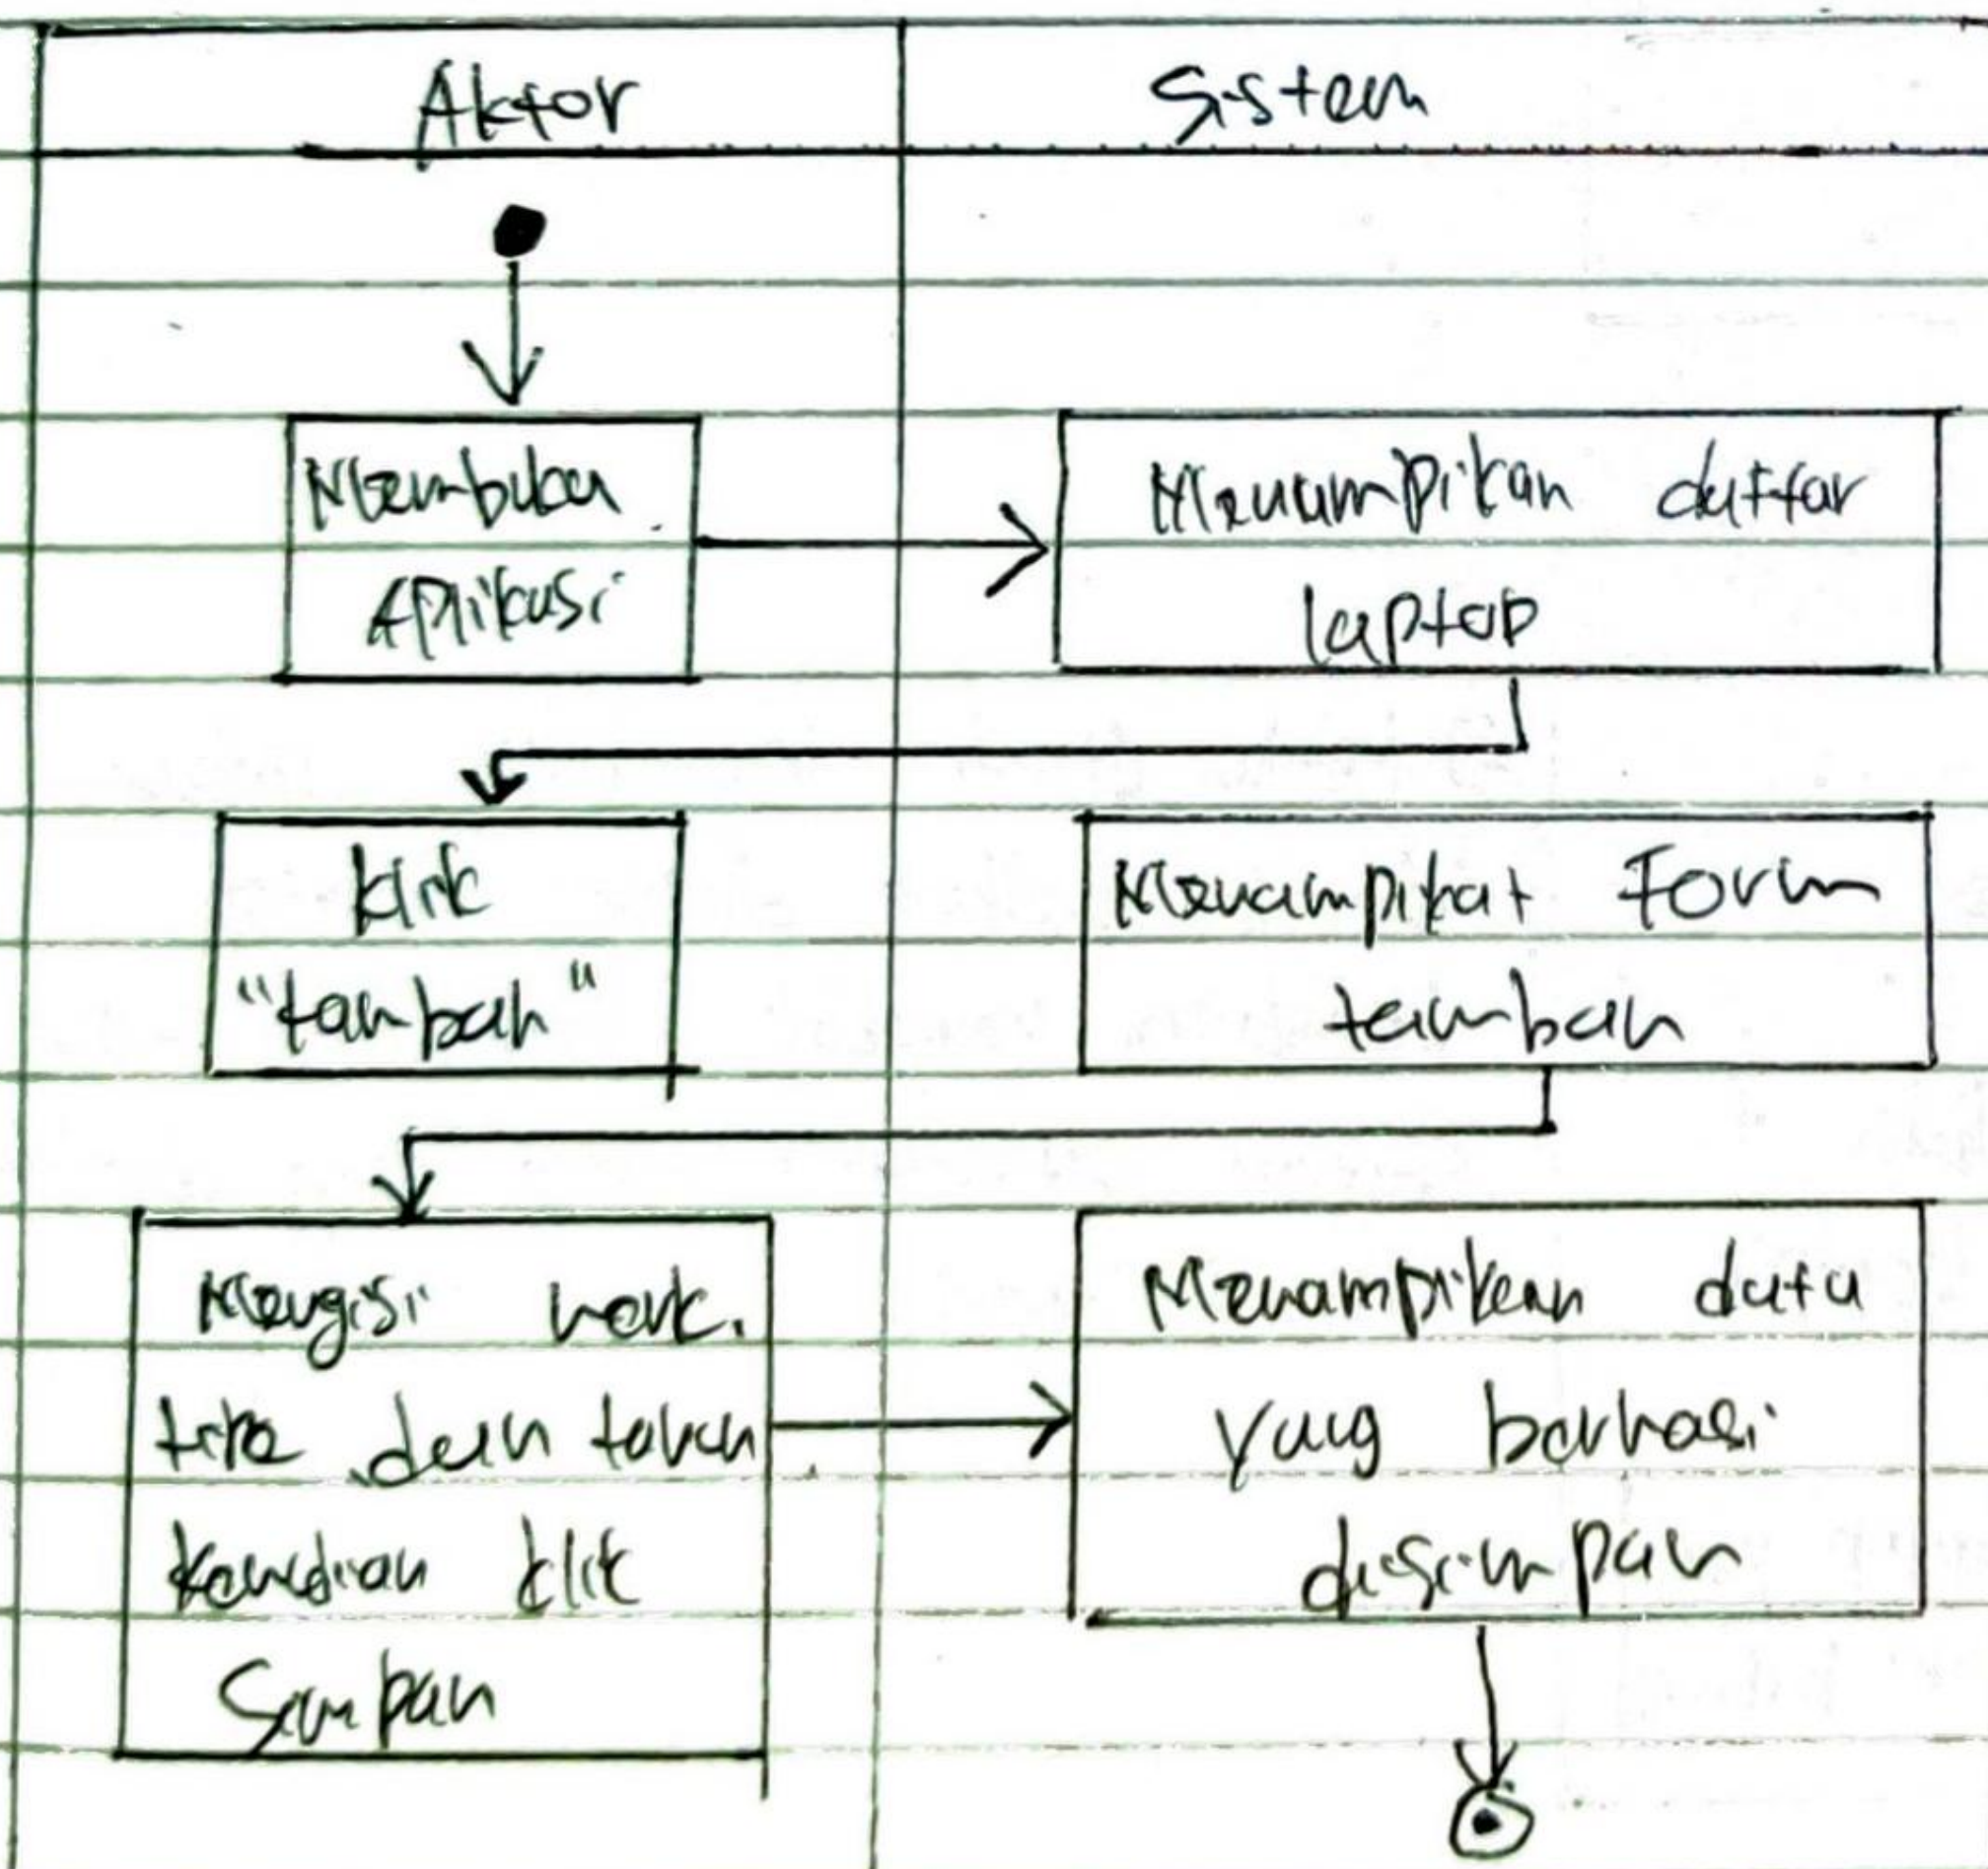 Aktor
Sistem
Membuka
Aplikasi
Menampikan daftar
laptop
klik
"tambah"
Menampikat Form
tambah
Mengisi merk.
tipe dan tahun
kemdian klik
Simpan
Menampikan data
yang berhasi
disimpan